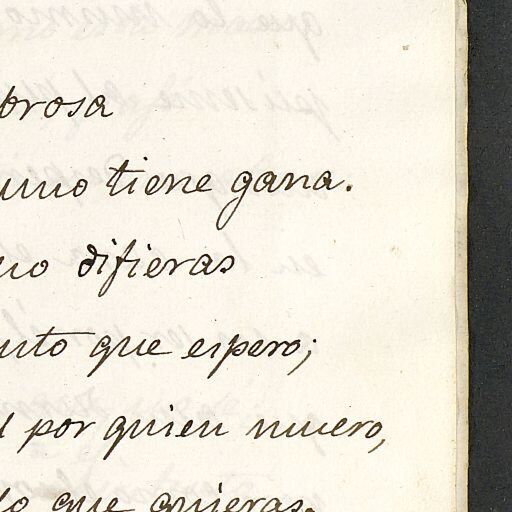 brosa
uno tiene gana.
no difieras
nto que espero;
por quien muero,
lo que quieras.